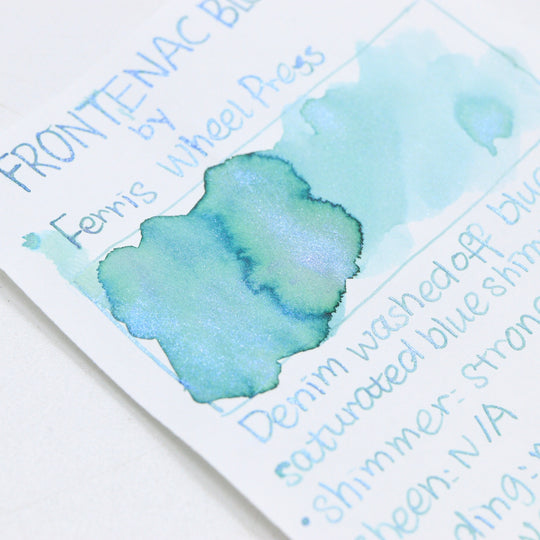 FRONTENAC
by
Ferris Wheel Press
Denim washedoff blue
saturated blue shim
• shimmer: strong
sheen: N/A